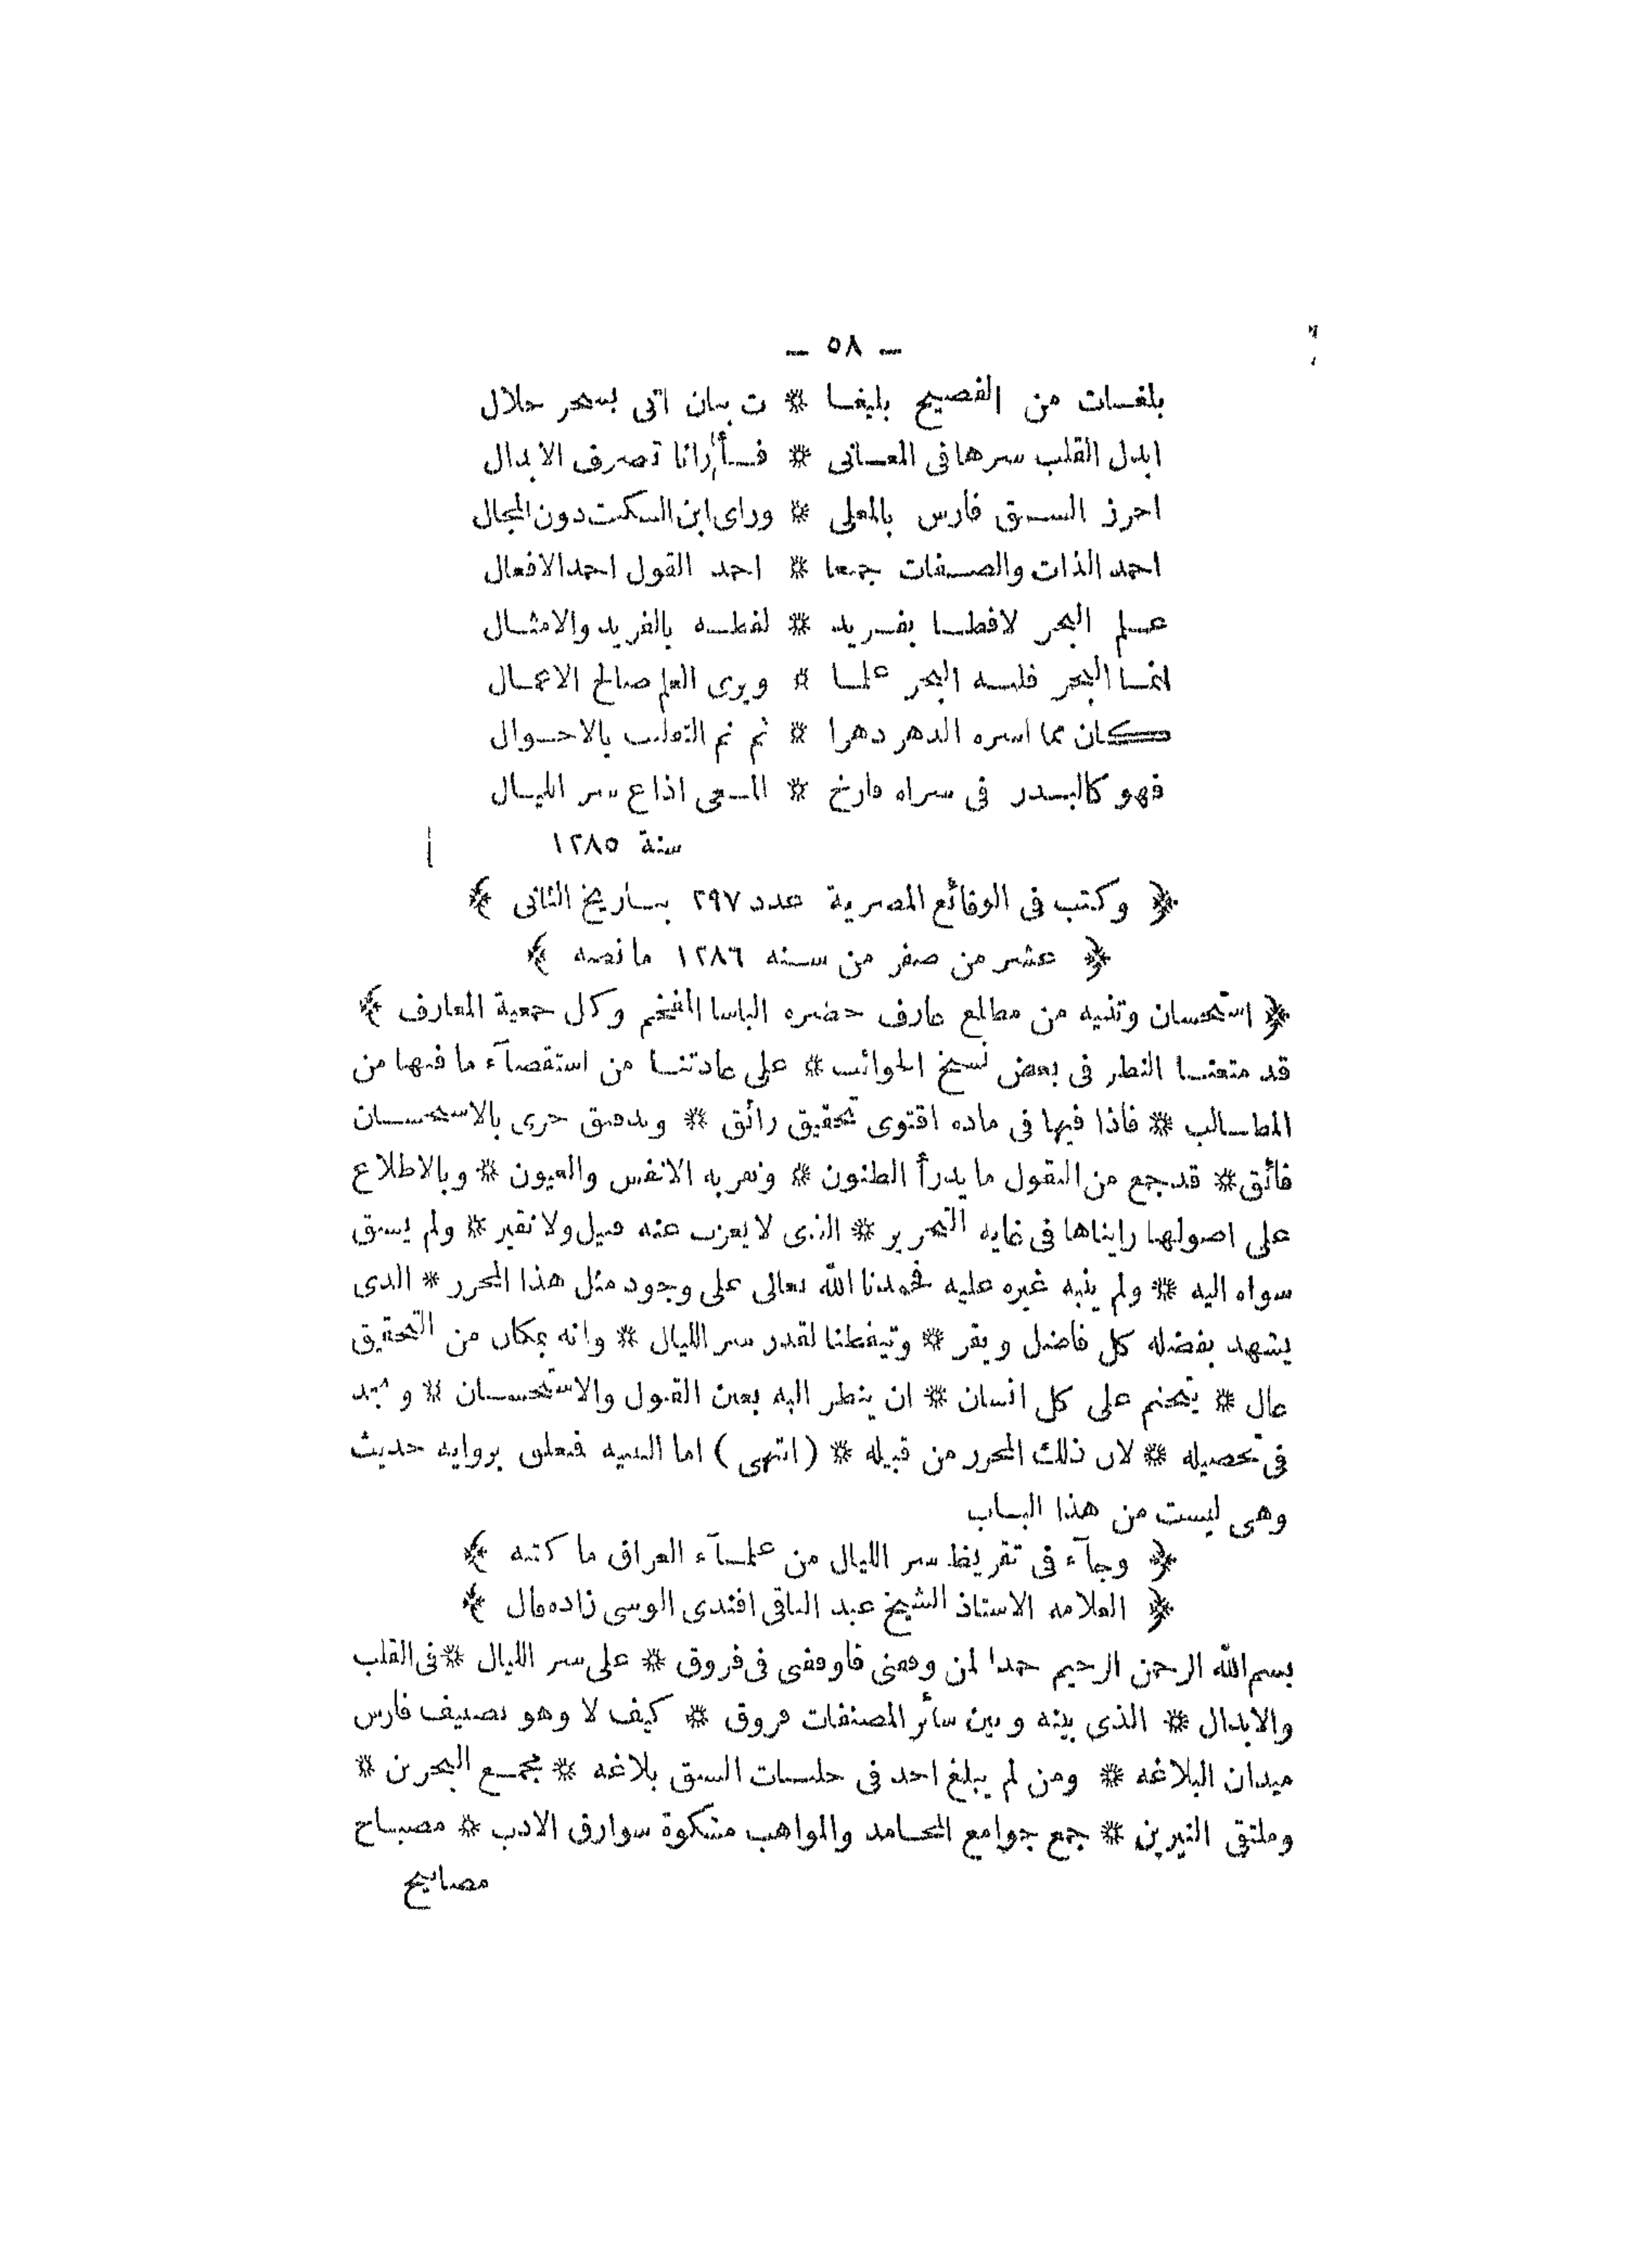 ـ ٥٨ ـ
بلغات من الفصيح بليغا * ت بيان اتى بسحر حلال
ابدل القلب سرها فى المعانى * فأرانا تصرف الابدال
احرز السبق فارس بالمعلى * وراى ابن السكيت دون المجال
احمد الذات والصفات جميعا * احمد القول احمد الافعال
علم البحر لافظا بفريد * لفظه بالفريد والامثال
انما البحر قلبه البحر علما * ويرى العلم صالح الاعمال
كان مما اسره الدهر دهرا * ثم نم التقليب بالاحوال
فهو كالبدر فى سراه فارخ * المعى اذاع سر الليال
سنة ١٢٨٥
﴿ وكتب فى الوقائع المصرية عدد ٢٩٧ بتاريخ الثانى ﴾
﴿ عشر من صفر من سنه ١٢٨٦ ما نصه ﴾
﴿ استحسان وتنبيه من مطالع عارف حضره الباشا المفخم وكل جمعية المعارف ﴾
قد متعنا النظر فى بعض نسخ الجوائب * على عادتنا من استقصآء ما فيها من
المطالب * فاذا فيها فى ماده اقتوى تحقيق رائق * وتدقيق حرى بالاستحسان
فائق * قد جمع من النقول ما يدرأ الظنون * وتقر به الانفس والعيون * وبالاطلاع
على اصولها رايناها فى غايه التحرير * الذى لا يعزب عنه فتيل ولا نقير * ولم يسبق
سواه اليه * ولم ينبه غيره عليه فحمدنا الله تعالى على وجود مثل هذا المحرر * الذى
يشهد بفضله كل فاضل ويقر * وتيقظنا لقدر سر الليال * وانه بمكان من التحقيق
عال * يتحتم على كل انسان * ان ينظر اليه بعين القبول والاستحسان * ويجد
فى تحصيله * لان ذلك المحرر من قبيله * (انتهى) اما التنبيه فتعلق بروايه حديث
وهى ليست من هذا الباب
﴿ وجآء فى تقريظ سر الليال من علمآء العراق ما كتبه ﴾
﴿ العلامه الاستاذ الشيخ عبد الباقى افندى الوسى زاده قال ﴾
بسم الله الرحمن الرحيم حمدا لمن وفقنى فاوقفنى فى فروق * على سر الليال * فى القلب
والابدال * الذى بينه وبين سائر المصنفات فروق * كيف لا وهو تصنيف فارس
ميدان البلاغه * ومن لم يبلغ احد فى حلبات السبق بلاغه * مجمع البحرين *
وملتقى النيرين * جمع جوامع المحامد والمواهب مشكوة سوارق الادب * مصباح
مصابيح